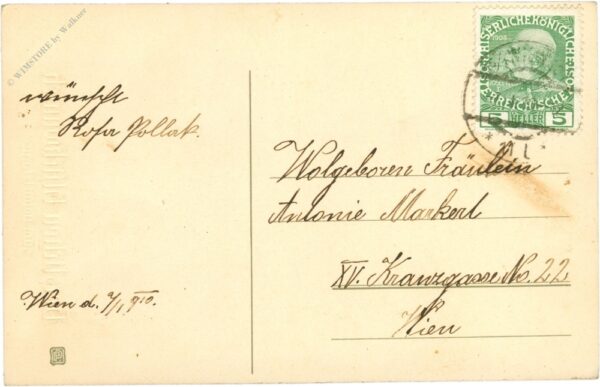 © WIMSTORE by Walkner
wünscht
Rosa Pollak.
Wien d. 7/1 910.
KAISERLICHE KÖNIGLICHE
ÖSTERREICHISCHE
1908
5 HELLER 5
Wolgeboren Fräulein
Antonie Markerl
XV. Kranzgasse No. 22
Wien